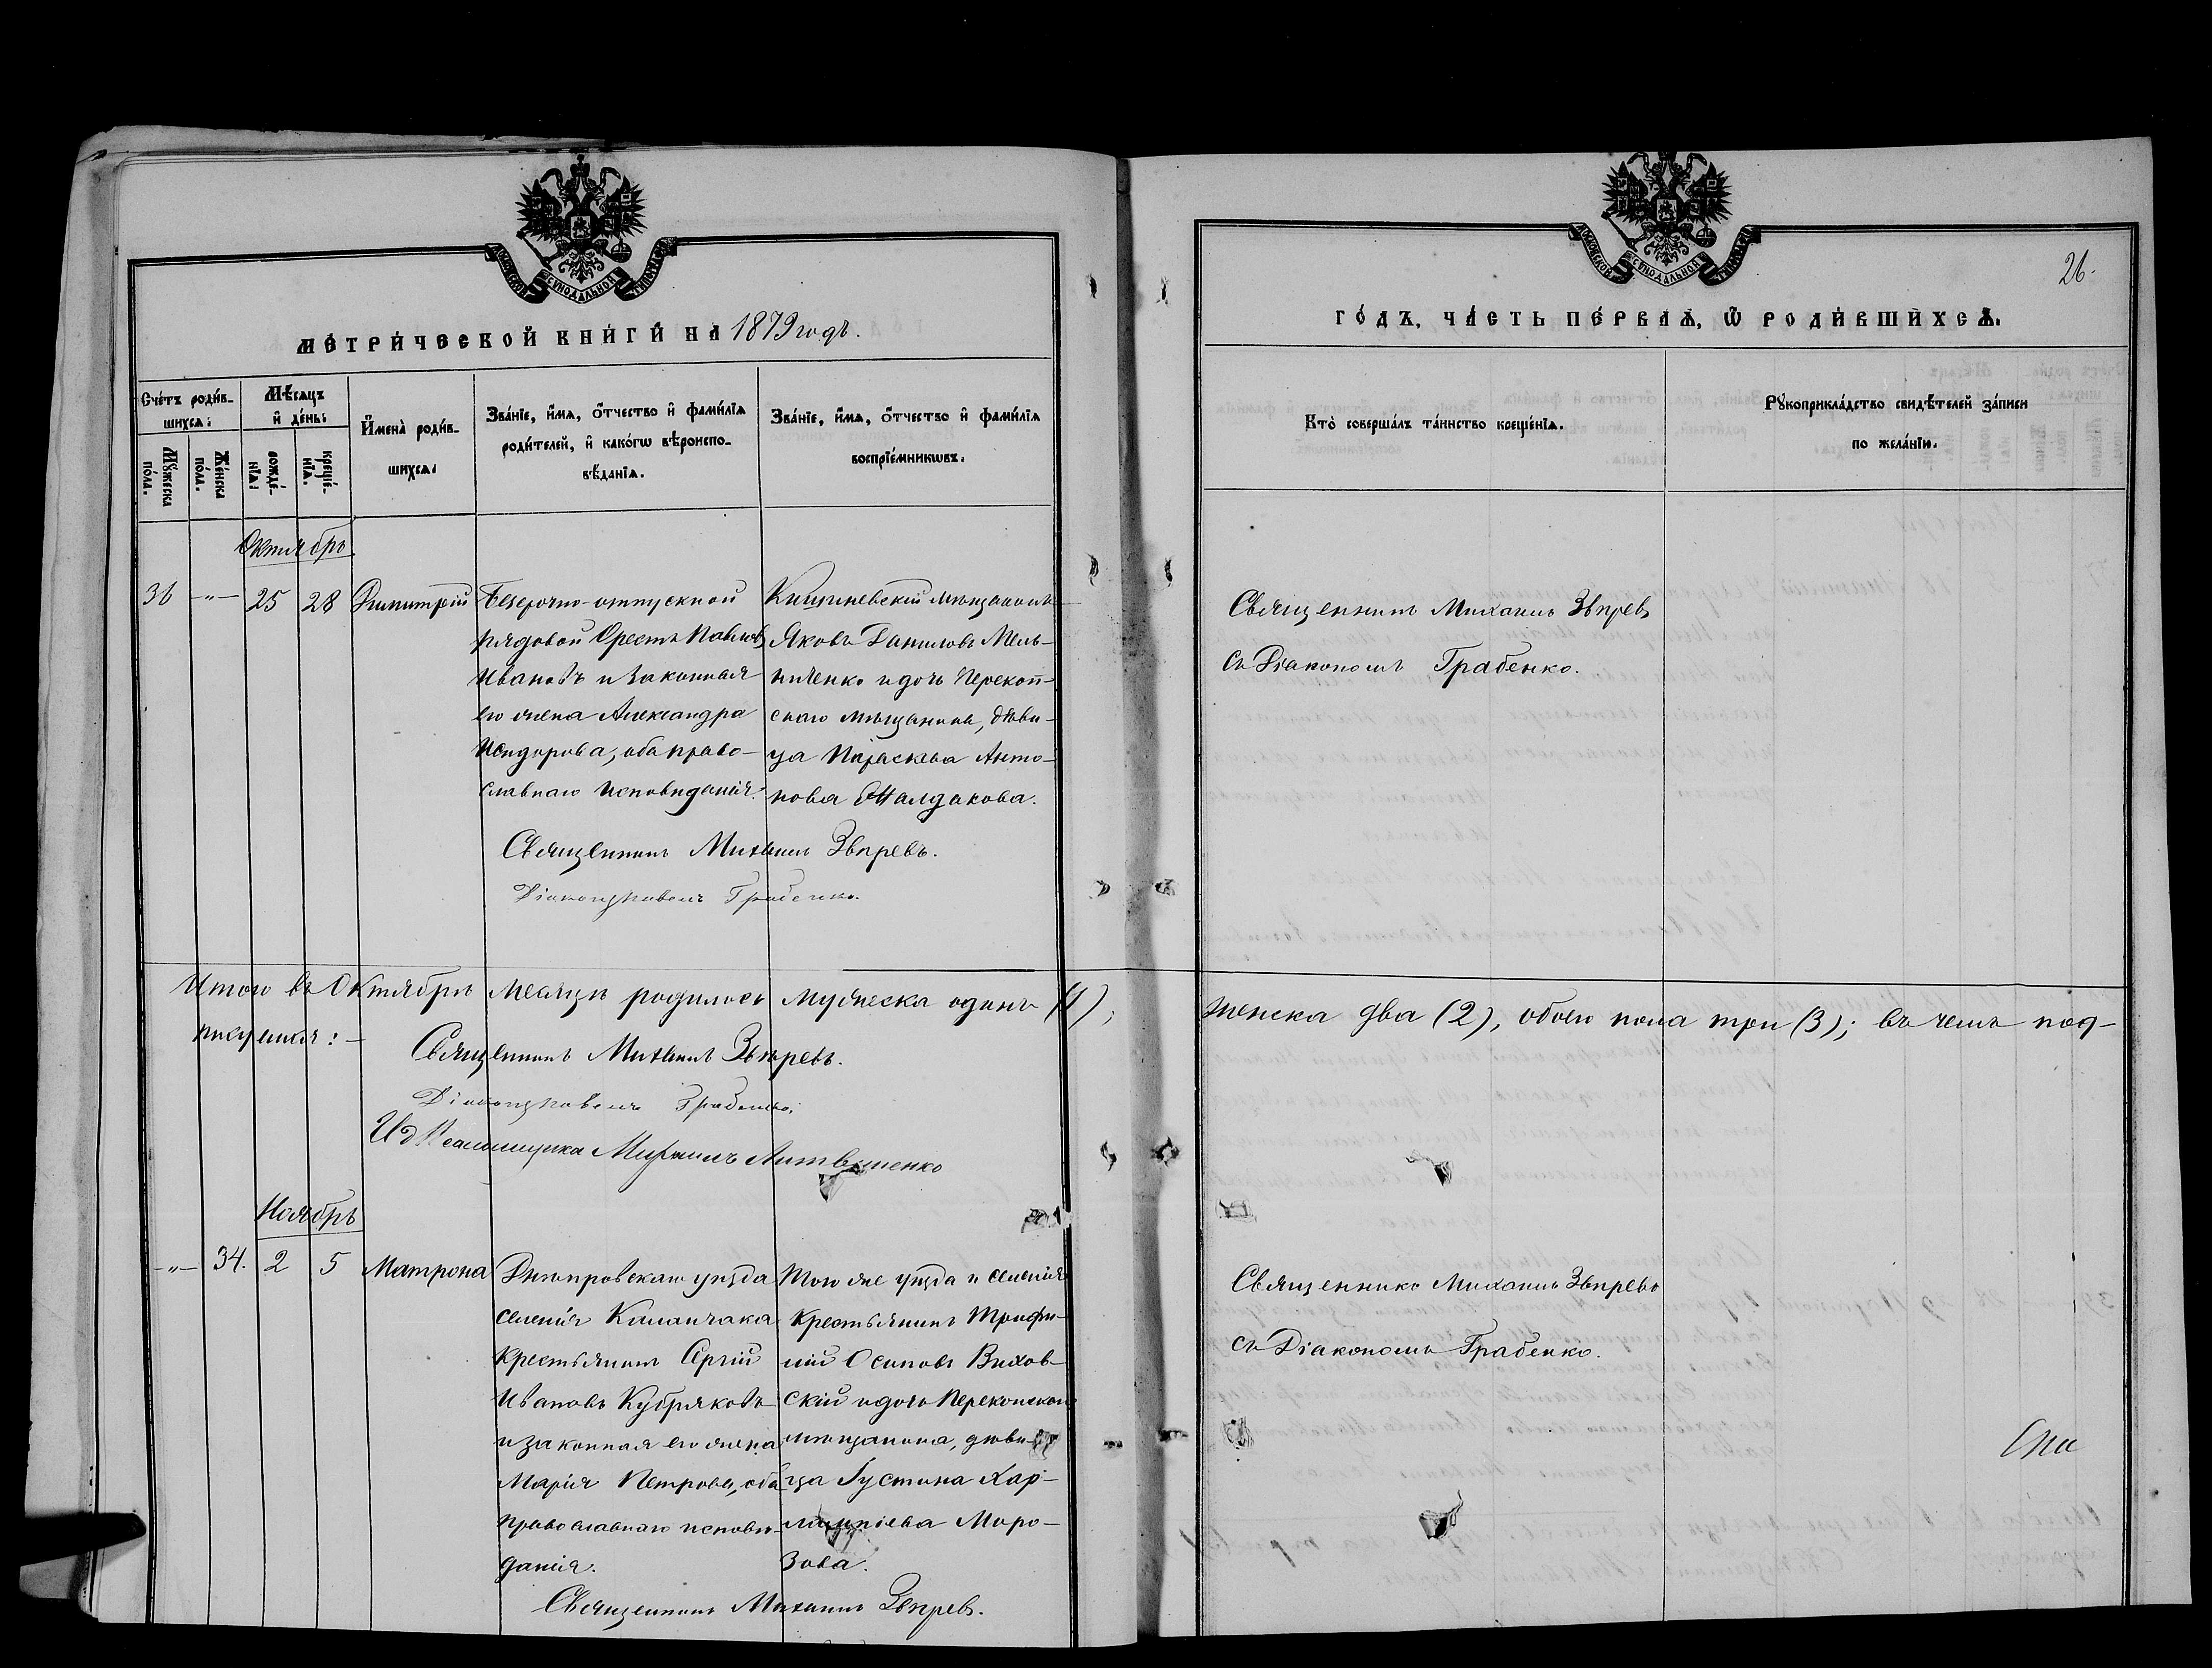 26.
МЕТРИЧЕСКОЙ КНИГИ НА 1879 годъ.
ГОДЪ, ЧАСТЬ ПЕРВАЯ, Ѡ РОДИВШИХСЯ.
Счетъ родив-
шихся:
Мѣсяцъ
и день:
Мужеска
пола.
Женска
пола.
рожде-
нія:
креще-
нія.
Имена родив-
шихся.
Званіе, имя, отчество и фамилія
родителей, и какогѡ вѣроиспо-
вѣданія.
Званіе, имя, отчество и фамилія
воспріемникѡвъ.
Кто совершалъ таинство крещенія.
Рукоприкладство свидѣтелей записи
по желанію.
Октябрь
36 -"- 25 28 Димитрій
Безсрочно-отпускной
рядовой Орестъ Павловъ
Ивановъ и законная
его жена Александра
Исидорова, оба право-
славнаго исповѣданія.
Кишиневскій мѣщанинъ
Яковъ Даниловъ Мель-
ниченко и дочь Перекоп-
скаго мѣщанина, дѣви-
ца Параскева Анто-
нова
Священникъ Михаилъ Звѣревъ
съ Діакономъ Грабенко.
Священникъ Михаилъ Звѣревъ.
Діаконъ Павелъ Грабенко.
Итого въ Октябрѣ месяцѣ родилось мужеска одинъ (1), женска два (2), обоего пола три (3); въ чемъ под-
писуемся:-
Священникъ Михаилъ Звѣревъ.
Діаконъ Павелъ Грабенко.
И д Псаломщика Михаилъ Литвиненко
Ноябрь
-"- 34. 2 5 Матрона
Днѣпровскаго уѣзда
селенія Каланчака
крестьянинъ Сергій
Ивановъ Кубряковъ
и законная его жена
Марія Петрова, оба
православнаго исповѣ-
данія.
Того же уѣзда и селенія
крестьянинъ Трифи-
лій Осиповъ Вихов-
скій и дочь Перекопскаго
мѣщанина, дѣви-
ца Іустина Хар-
лампіева Моро-
зова.
Священникъ Михаилъ Звѣревъ
съ Діакономъ Грабенко.
Священникъ Михаилъ Звѣревъ.